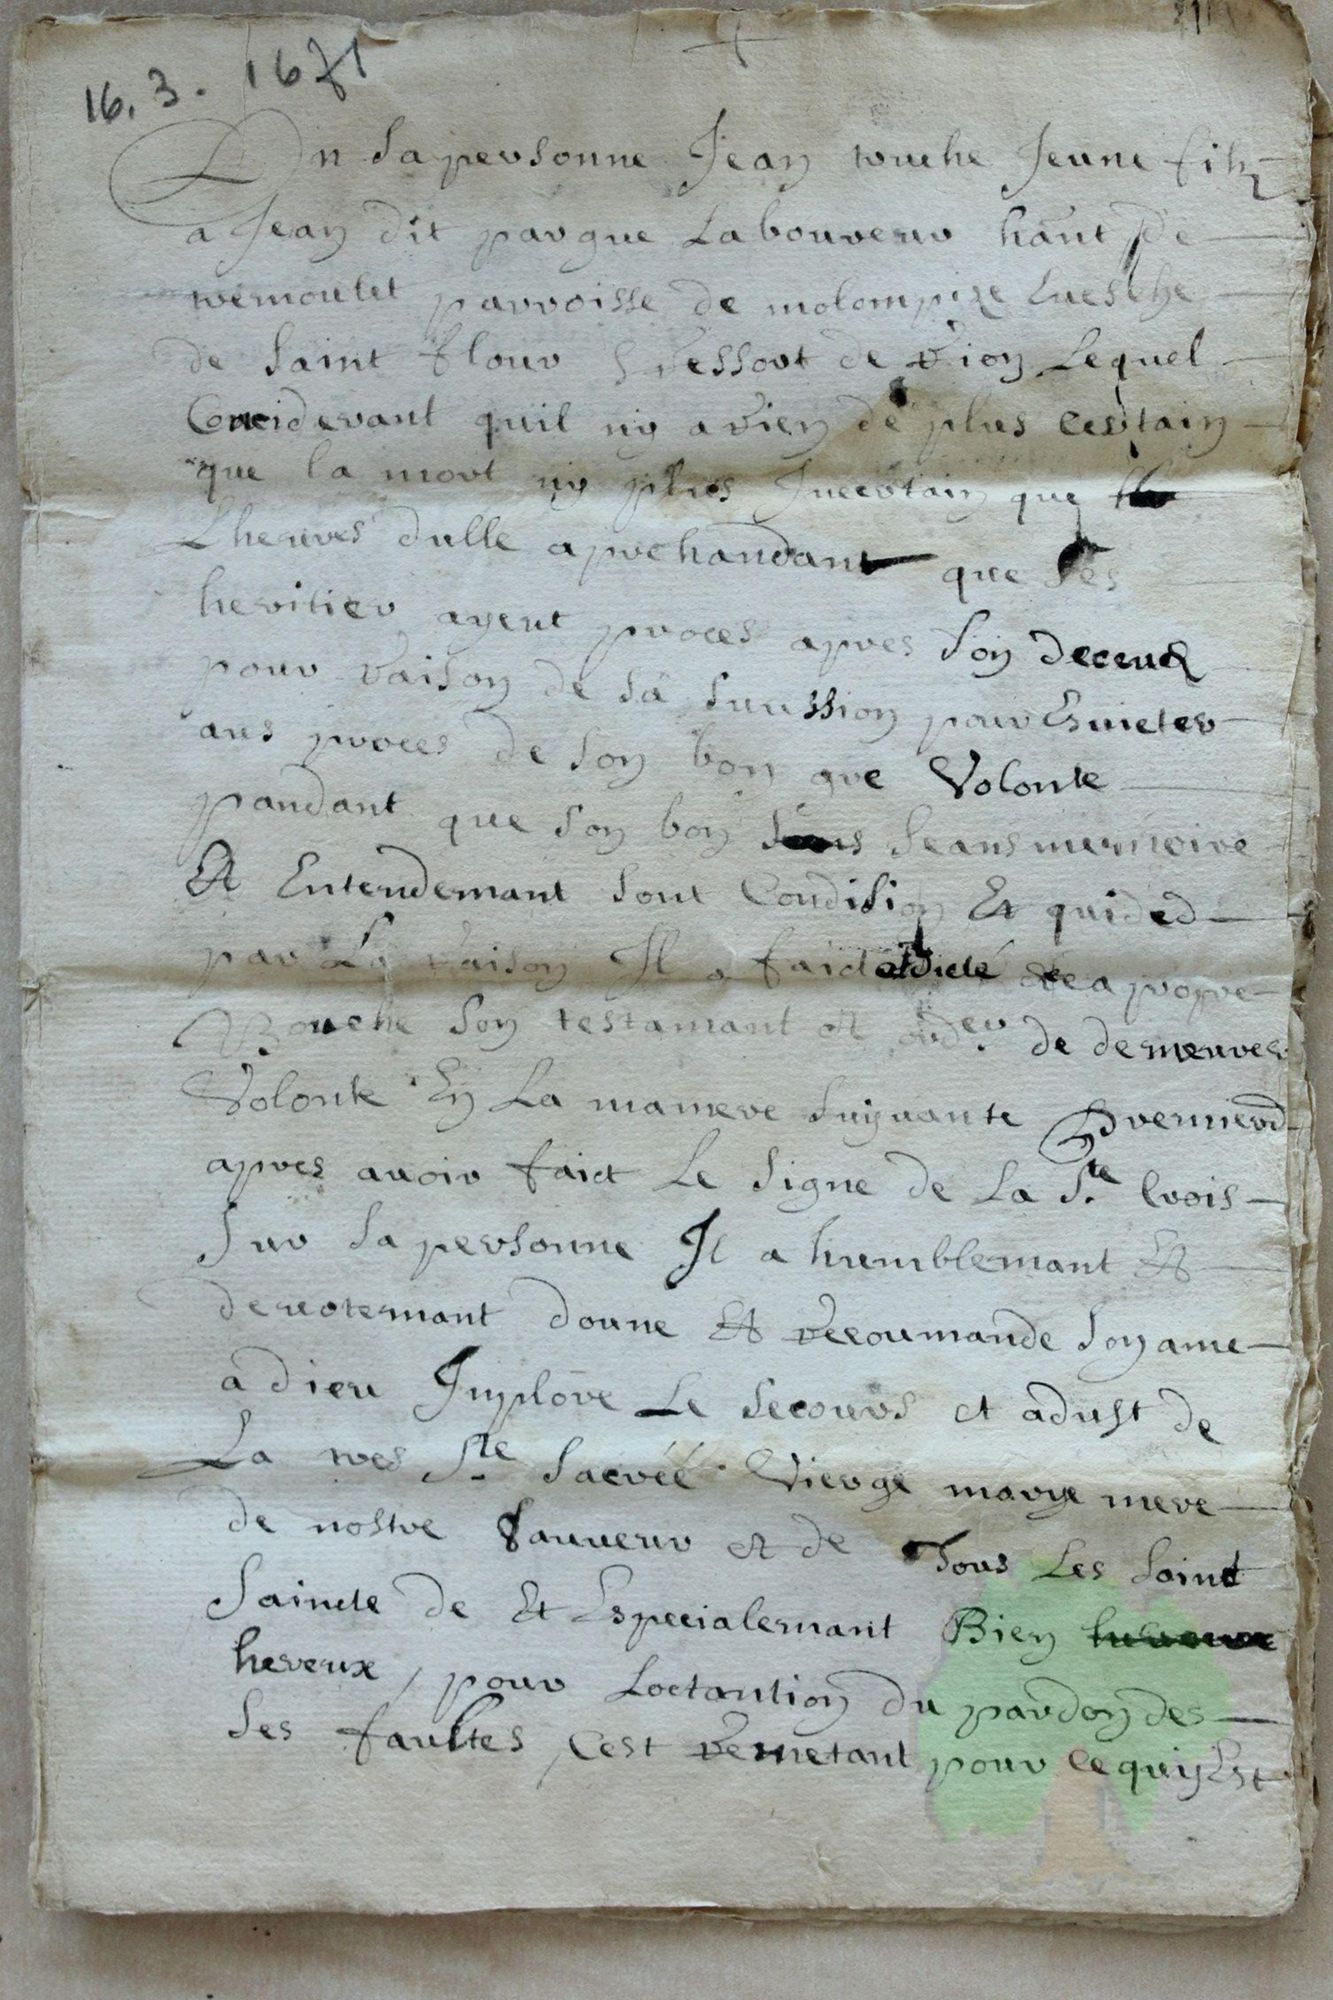 16.3.1671
En sa personne Jean touche Jeune filz
a Jean dit pargue Laboureur hant de
tremoulet parroisse de molompize Euesche
de saint flour ressort de Rion Lequel
Conciderant quil ny a rien de plus certain
que la mort ny plus Incertain que
Lheures dulle aprehandant que ses
heritier ayent proces apres son deceud
pour raison de sa sucssion pour Esuieter
aus proces de son bon gre Volonte
pandant que son bon sens seans memoire
Et Entendemant sont Condision Et guided
par La raison Il a faict et dicté de sa propre
Bouche son testamant et order de dernieures
Volonte En La maniere suyuante premierd
apres auoir faict Le signe de La Ste Crois
sur sa personne Il a humblemant Et
deuotemant donne Et recoumande son ame
a dieu Implore Le secours et adust de
La tres Ste sacrée Vierge marye mere
de nostre sauueur et de Tous Les saint
saincte de Et Especialemant Bien
hereux, pour Loctantion du pardon des
ses faultes, Cest remetant pour ce quy Est